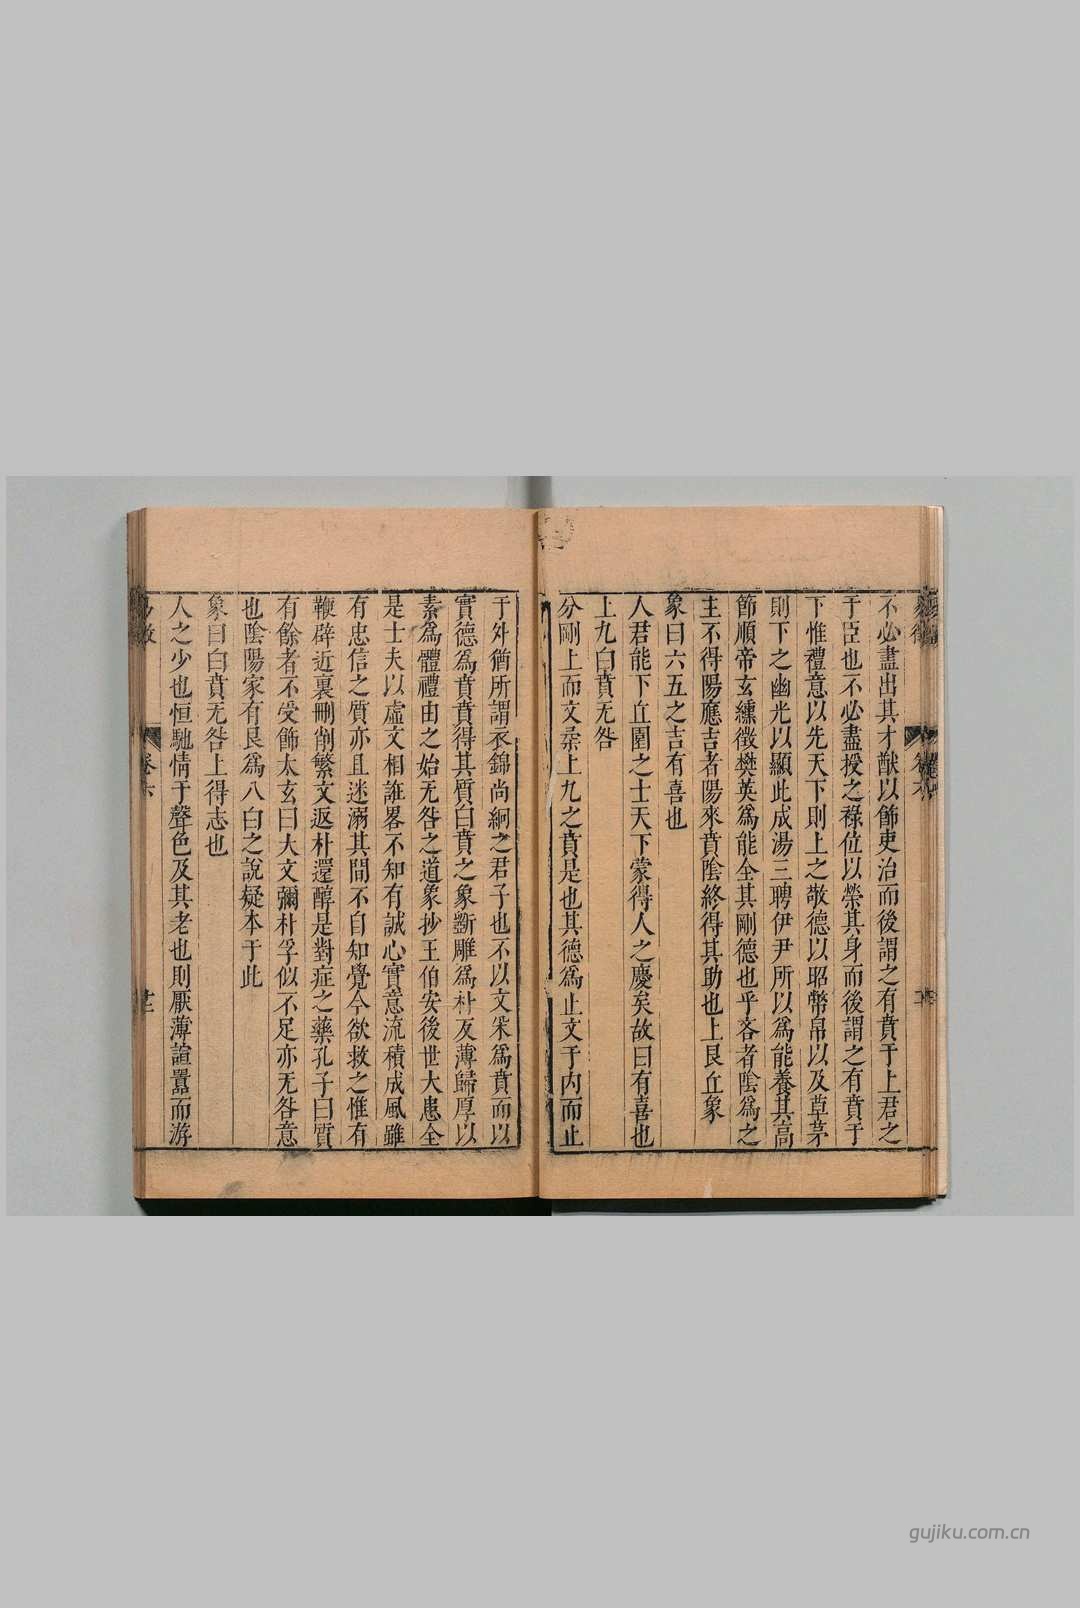 不必盡出其才猷以飾吏治而後謂之有賁于上君之
于臣也不必盡授之祿位以榮其身而後謂之有賁于
下惟禮意以先天下則上之敬德以昭幣帛以及草茅
則下之幽光以顯此成湯三聘伊尹所以爲能養其高
節順帝玄纁徵樊英爲能全其剛德也乎吝者陰爲之
主不得陽應吉者陽來賁陰終得其助也上艮丘象
象曰六五之吉有喜也
人君能下丘園之士天下蒙得人之慶矣故曰有喜也
上九白賁无咎
分剛上而文柔上九之賁是也其德爲止文于内而止
于外猶所謂衣錦尚絅之君子也不以文采爲賁而以
實德爲賁賁得其質白賁之象斵雕爲朴反薄歸厚以
素爲體禮由之始无咎之道象抄王伯安後世大患全
是士夫以虛文相誑畧不知有誠心實意流積成風雖
有忠信之質亦且迷溺其間不自知覺今欲救之惟有
鞭辟近裏刪削繁文返朴還醇是對症之藥孔子曰質
有餘者不受飾太玄曰大文彌朴孚似不足亦无咎意
也陰陽家有艮爲八白之說疑本于此
象曰白賁无咎上得志也
人之少也恒馳情于聲色及其老也則厭薄諠囂而游
卷六